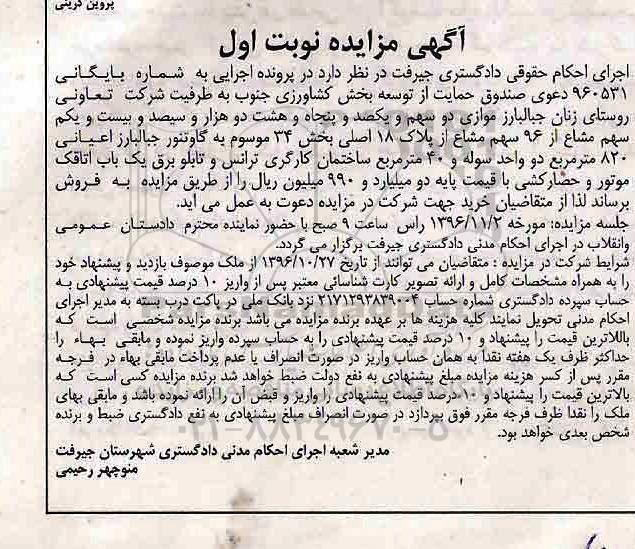 پروین گرینی
آگهی مزایده نوبت اول
اجرای احکام حقوقی دادگستری جیرفت در نظر دارد در پرونده اجرایی به شماره بایگانی
۹۶۰۵۳۱ دعوی صندوق حمایت از توسعه بخش کشاورزی جنوب به ظرفیت شرکت تعاونی
روستای زنان جبالبارز موازی دو سهم و یکصد و پنجاه و هشت دو هزار و سیصد و بیست و یکم
سهم مشاع از ۹۶ سهم مشاع از پلاک ۱۸ اصلی بخش ۳۴ موسوم به گاوتنور جبالبارز اعیانی
۸۲۰ مترمربع دو واحد سوله و ۴۰ مترمربع ساختمان کارگری ترانس و تابلو برق یک باب اتاقک
موتور و حصارکشی با قیمت پایه دو میلیارد و ۹۹۰ میلیون ریال را از طریق مزایده به فروش
برساند لذا از متقاضیان خرید جهت شرکت در مزایده دعوت به عمل می آید.
جلسه مزایده: مورخه ۱۳۹۶/۱۱/۲ راس ساعت ۹ صبح با حضور نماینده محترم دادستان عمومی
وانقلاب در اجرای احکام مدنی دادگستری جیرفت برگزار می گردد.
شرایط شرکت در مزایده : متقاضیان می توانند از تاریخ ۱۳۹۶/۱۰/۲۷ از ملک موصوف بازدید و پیشنهاد خود
را به همراه مشخصات کامل و ارائه تصویر کارت شناسائی معتبر پس از واریز ۱۰ درصد قیمت پیشنهادی به
حساب سپرده دادگستری شماره حساب ۲۱۷۱۲۹۳۸۳۹۰۰۴ نزد بانک ملی در پاکت درب بسته به مدیر اجرای
احکام مدنی تحویل نمایند کلیه هزینه ها بر عهده برنده مزایده می باشد برنده مزایده شخصی است که
باللاترین قیمت را پیشنهاد و ۱۰ درصد قیمت پیشنهادی را به حساب سپرده واریز نموده و مابقی بهاء را
حداکثر ظرف یک هفته نقدا به همان حساب واریز در صورت انصراف یا عدم پرداخت مابقی بهاء در فرجه
مقرر پس از کسر هزینه مزایده مبلغ پیشنهادی به نفع دولت ضبط خواهد شد برنده مزایده کسی است که
بالاترین قیمت را پیشنهاد و ۱۰درصد قیمت پیشنهادی را واریز و قبض آن را ارائه نموده باشد و مابقی بهای
ملک را نقدا ظرف فرجه مقرر فوق بپردازد در صورت انصراف مبلغ پیشنهادی به نفع دادگستری ضبط و برنده
شخص بعدی خواهد بود.
مدیر شعبه اجرای احکام مدنی دادگستری شهرستان جیرفت
منوچهر رحیمی